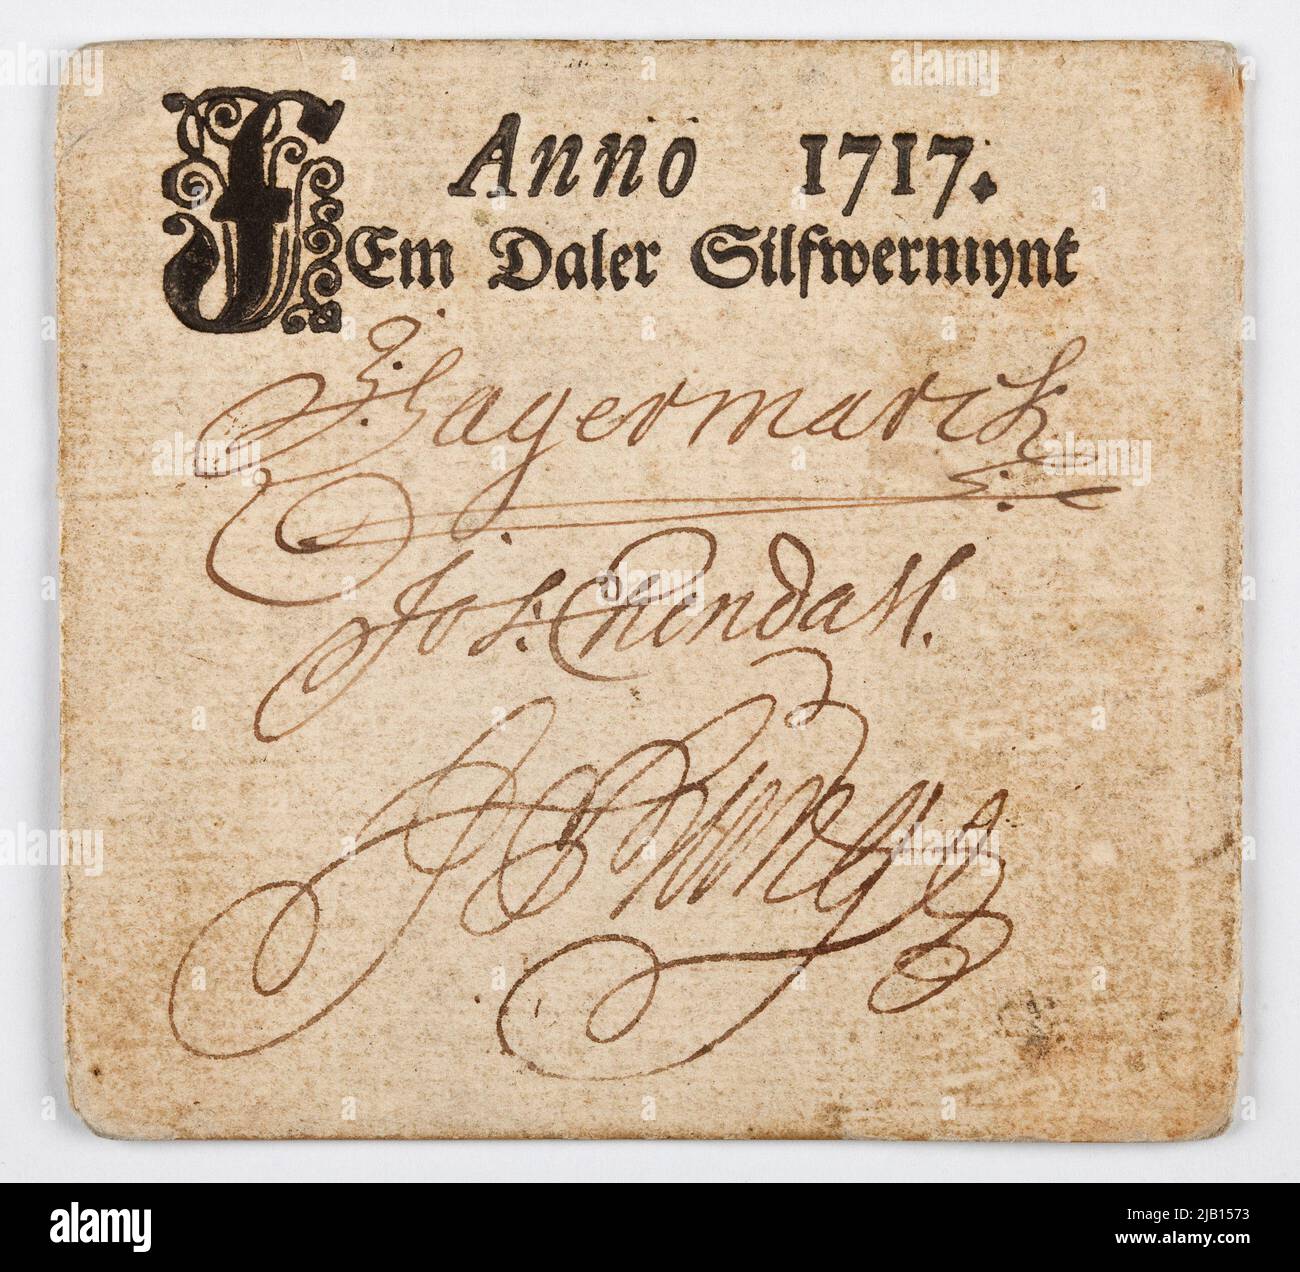 Anno 1717.
FEm Daler Silfwermynt
J: Lagermarck
Jos: Ehrendall.
alamy
Image ID: 2JB1573
www.alamy.com